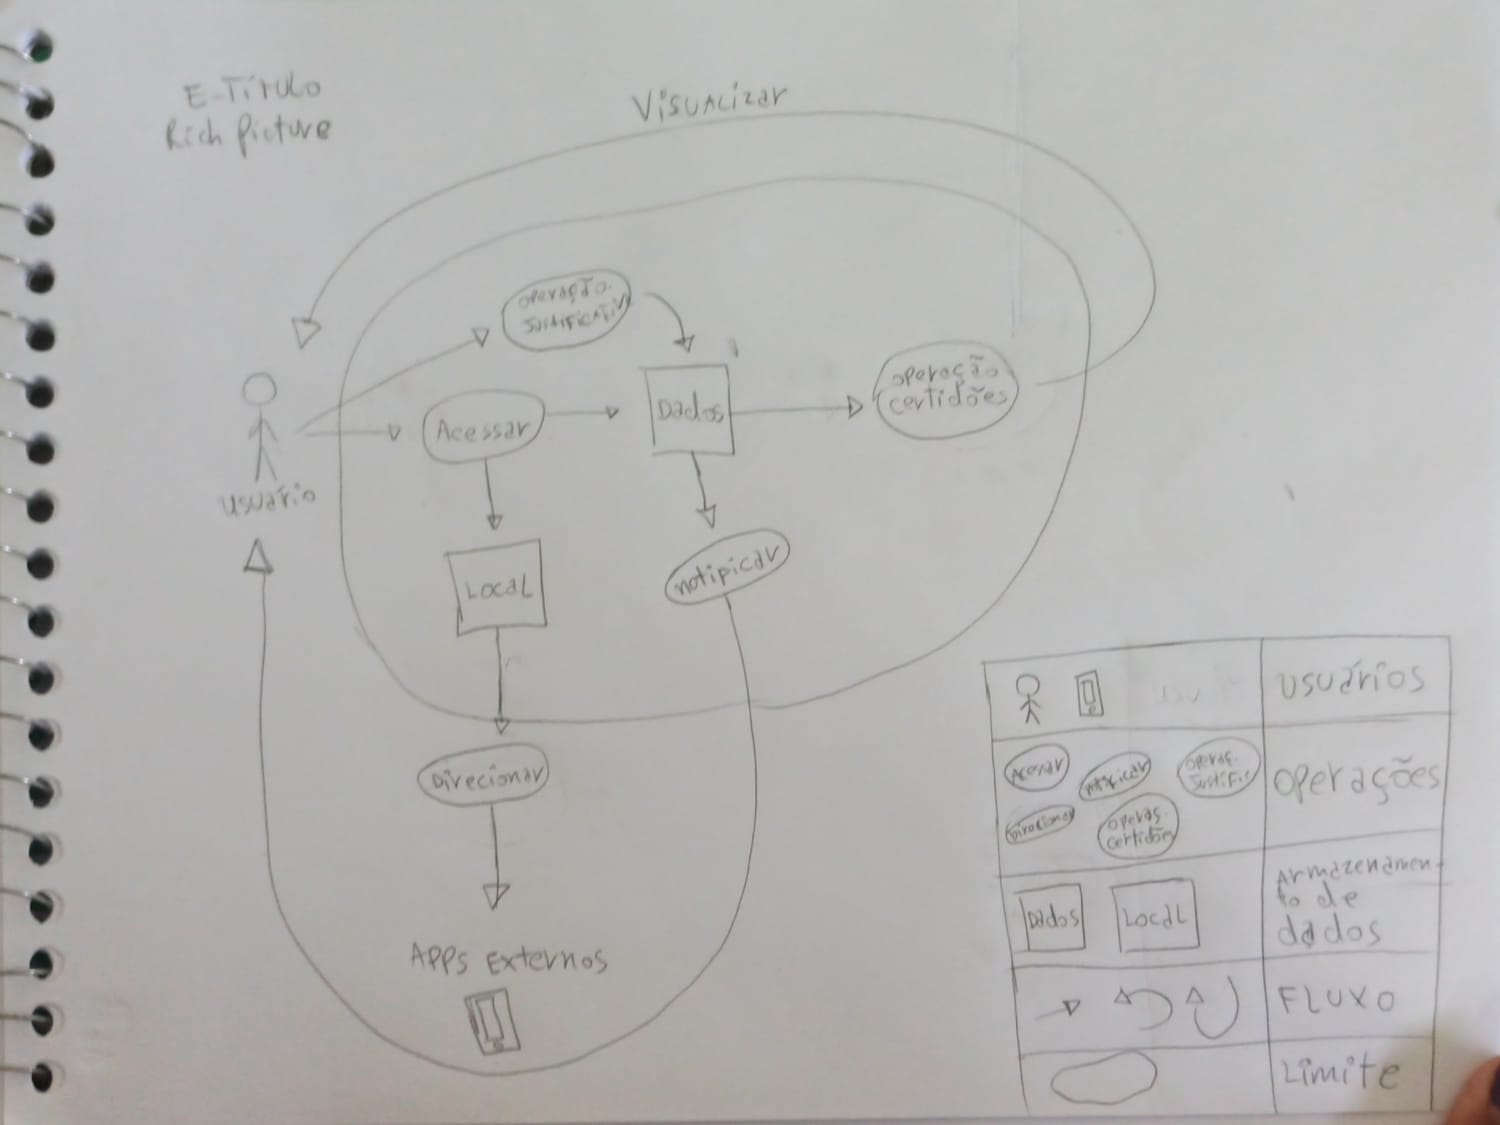 E-Título
Rich Picture
Visualizar
operação
Dados
operação
certidões
Acessar
usuário
Local
notipicar
Direcionar
Apps Externos
usuários
Acessar
notificar
operaç
justific
Direcionar
operaç
certidões
operações
Dados
Local
Armazenamen-
to de
dados
FLUXO
Limite